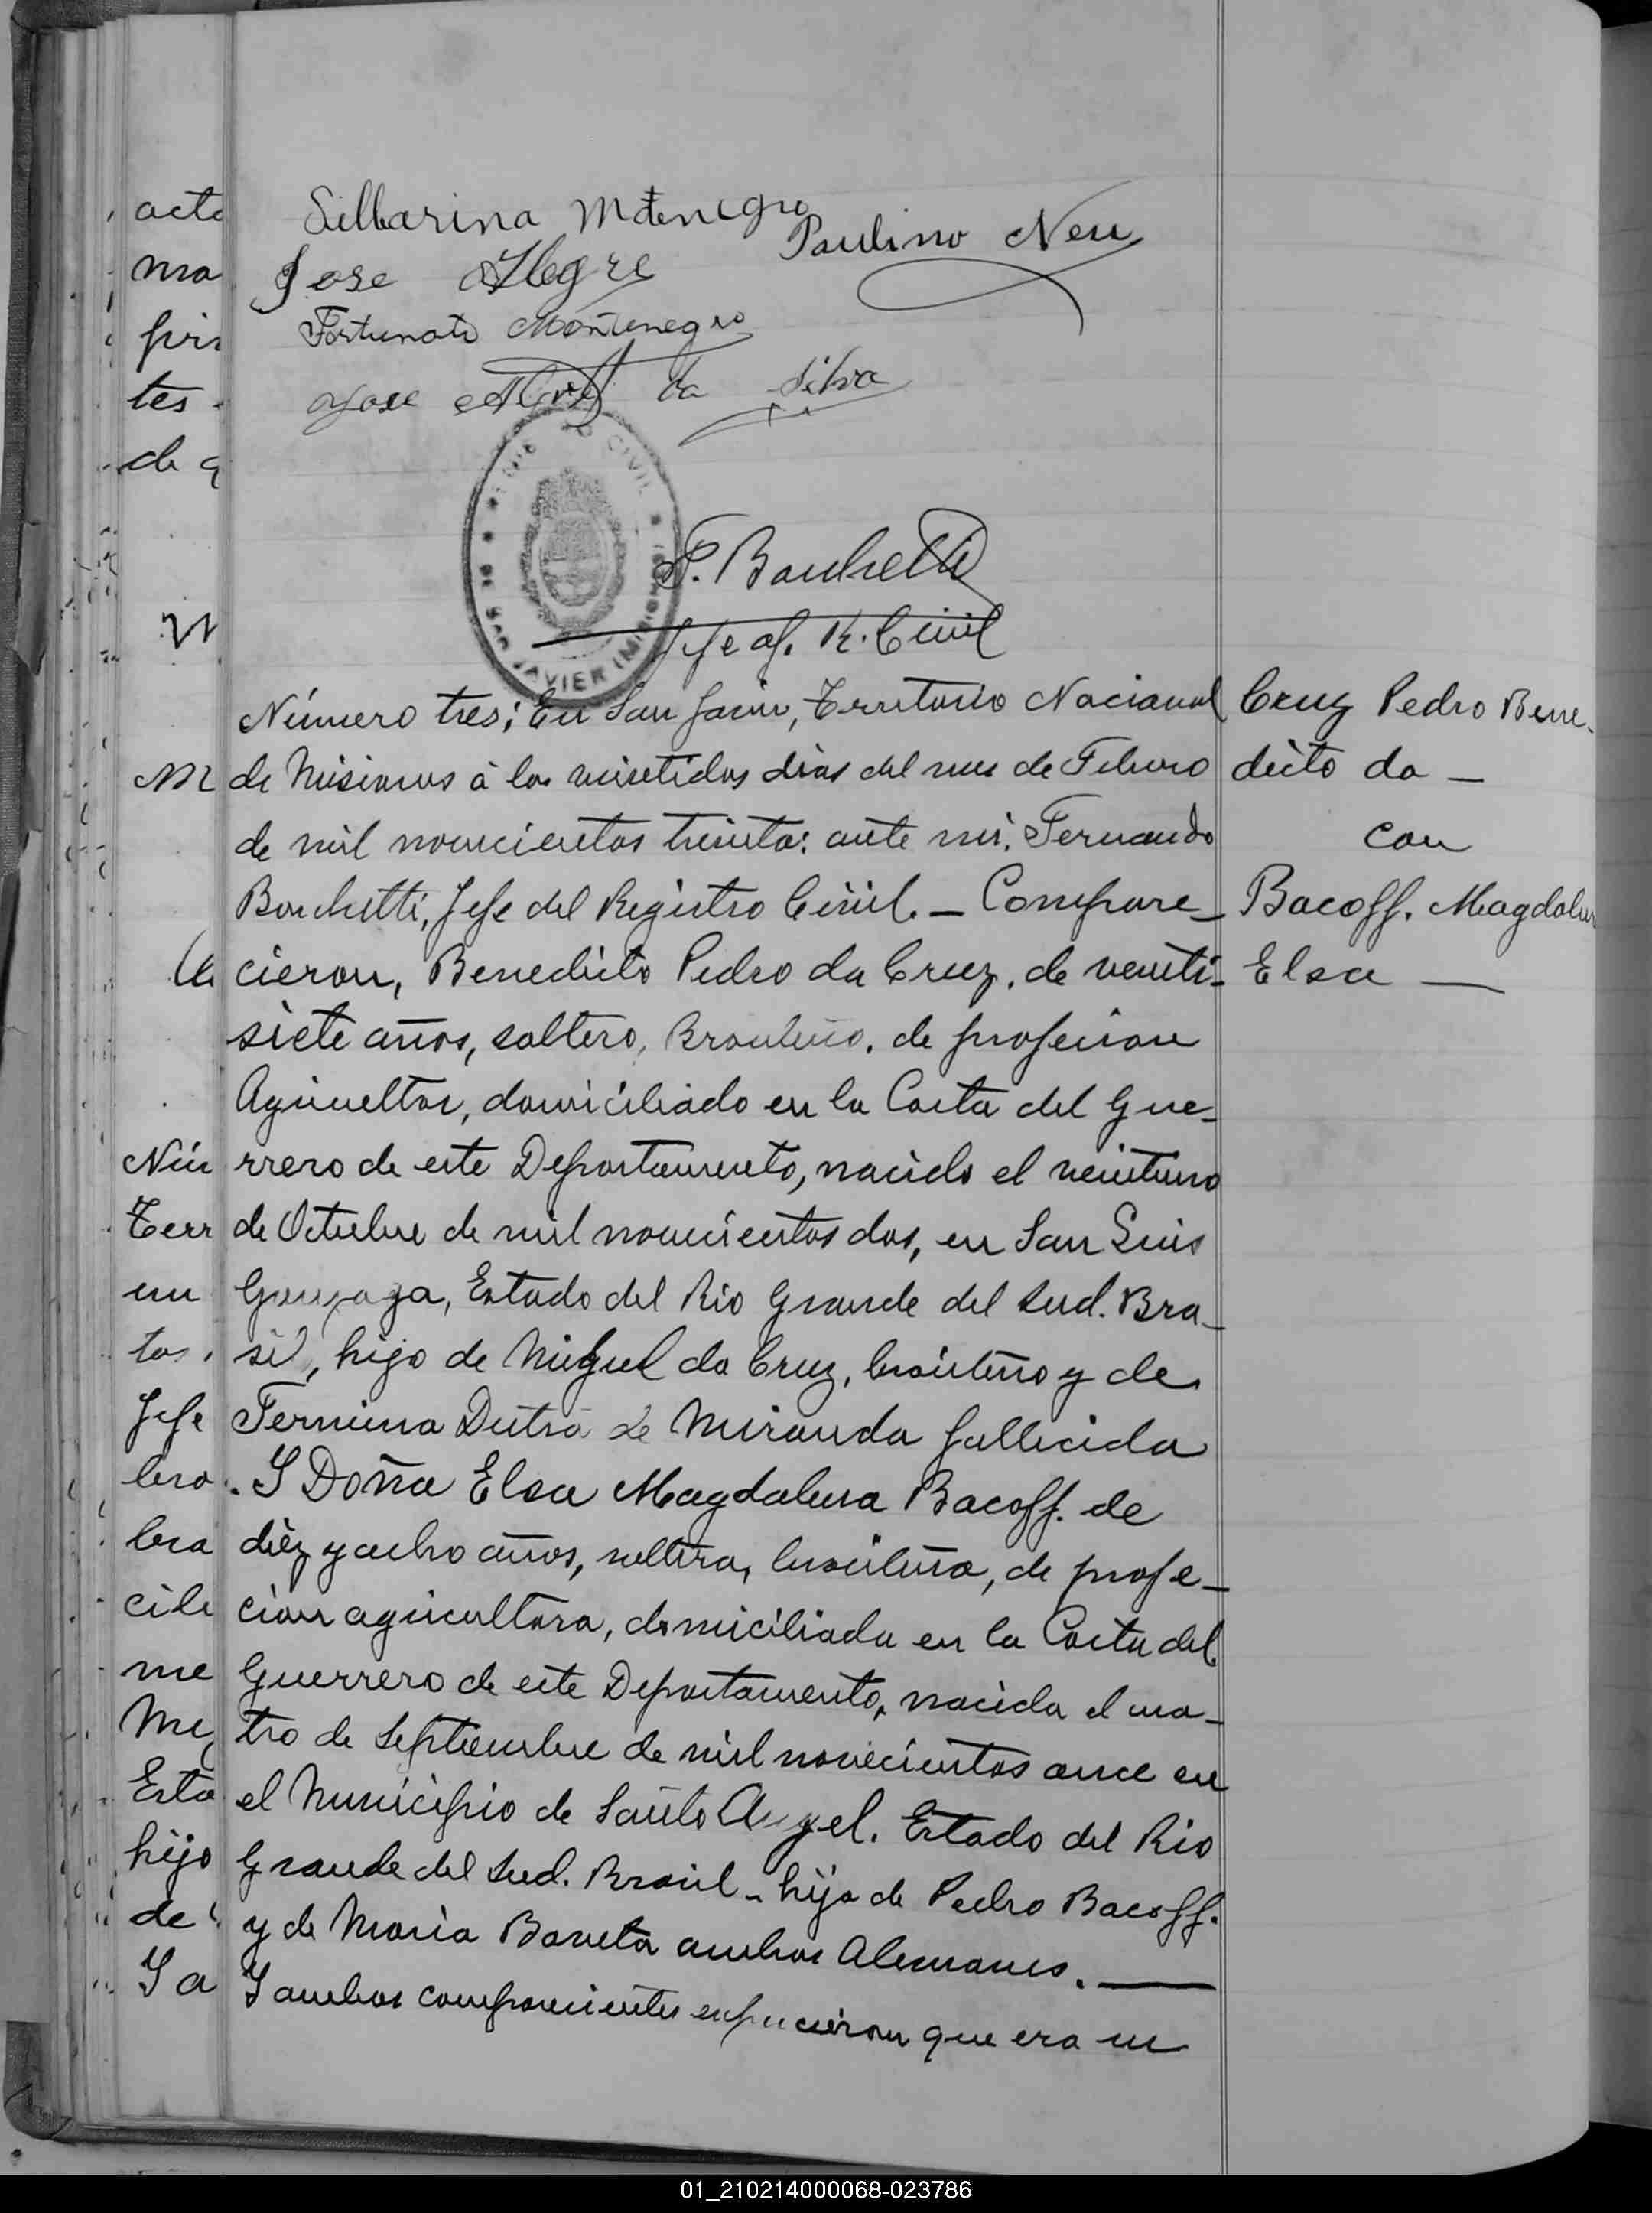 Sillbarina Mtenegro
Paulino Neu
Jose Alegre
Fortunato Montenegro
Jose Alves da Silva
CIVIL
DE SAN JAVIER (MISIONES)
F. Borchetti
Jefe of. R. Civil
Número tres; En San Javier, Territorio Nacional
de Misiones á los veintidos dias del mes de Febrero
de mil novecientos treinta: ante mi. Fernando
Borchetti, Jefe del Registro Civil. — Compare_
cieron, Benedicto Pedro da Cruz, de veinti_
siete años, soltero, Brasileño, de profecion
Agricultor, domiciliado en la Costa del Gue_
rrero de este Departamento, nacido el veintiuno
de Octubre de mil novecientos dos, en San Luis
Gonzaga, Estado del Rio Grande del Sud. Bra_
sil, hijo de Miguel da Cruz, brasileño y de
Fermina Dutra de Miranda fallecida
. Y Doña Elsa Magdalena Bacoff. de
diez y ocho años, soltera, brasileña, de profe_
cion agricultora, domiciliada en la Costa del
Guerrero de este Departamento, nacida el cua_
tro de Septiembre de mil novecientos once en
el Municipio de Santo Angel. Estado del Rio
Grande del Sud. Brasil - hija de Pedro Bacoff.
y de Maria Boneta ambos Alemanes. —
Y ambos comparecientes expucieron que era su
Cruz Pedro Bene_
dicto da —
con
Bacoff. Magdalena
Elsa —
acta
ma
pri
tes
de q
M
Nún
Terr
un
tos,
Jefe
bro
bra
cili
me
Mi
Esta
hijo
de
Y a
01_210214000068-023786